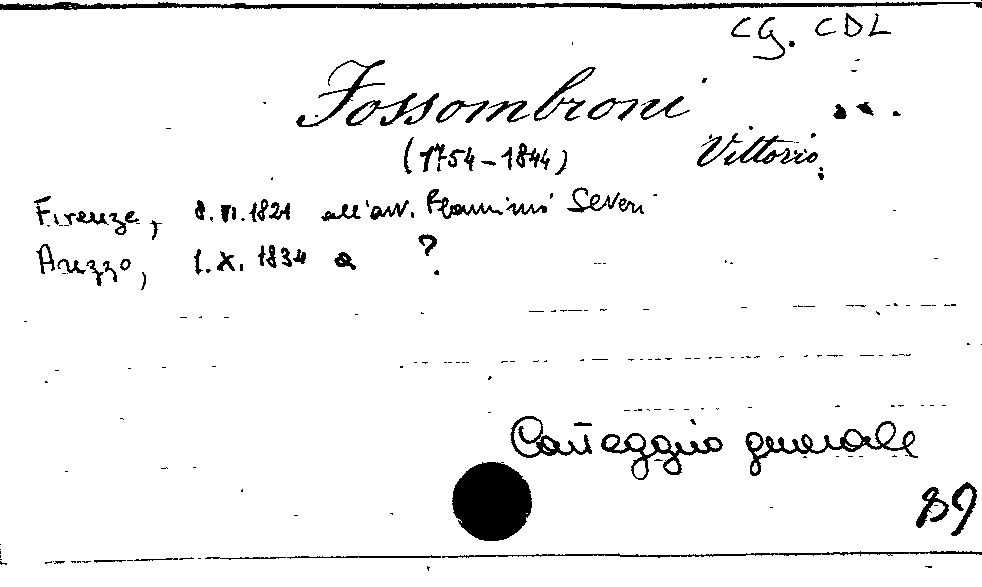 CG. CDL
Fossombroni
Vittorio
(1754-1844)
Firenze, 8. VI. 1821 all'avv. Flaminio Severi
Arezzo, 1. X. 1834 a ?
Carteggio generale
89